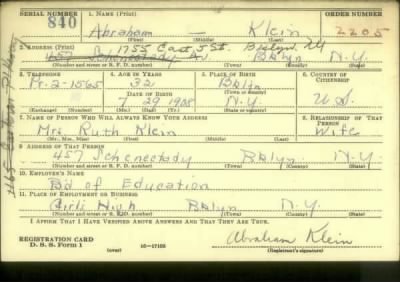 SERIAL NUMBER 1. NAME (Print) ORDER NUMBER
840 Abraham — Klein 2205
(First) (Middle) (Last)
2. ADDRESS (Print) 1755 East 5 St. N.Y.
457 Schenectady Av Bklyn N.Y.
(Number and street or R. F. D. number) (Town) (County) (State)
3. TELEPHONE 4. AGE IN YEARS 5. PLACE OF BIRTH 6. COUNTRY OF CITIZENSHIP
Pr-2-1565 32 Bklyn
DATE OF BIRTH (Town or county)
7 29 1908 N.Y. U.S.
(Exchange) (Number) (Mo.) (Day) (Yr.) (State or country)
7. NAME OF PERSON WHO WILL ALWAYS KNOW YOUR ADDRESS 8. RELATIONSHIP OF THAT PERSON
Mrs. Ruth Klein Wife
(Mr., Mrs., Miss) (First) (Middle) (Last)
9. ADDRESS OF THAT PERSON
457 Schenectady Bklyn N.Y.
(Number and street or R. F. D. number) (Town) (County) (State)
10. EMPLOYER'S NAME
Bd of Education
11. PLACE OF EMPLOYMENT OR BUSINESS
Girls High Bklyn N.Y.
(Number and street or R. F. D. number) (Town) (County) (State)
I AFFIRM THAT I HAVE VERIFIED ABOVE ANSWERS AND THAT THEY ARE TRUE.
REGISTRATION CARD
D. S. S. Form 1 (over) 16—17105 Abraham Klein
(Registrant's signature)